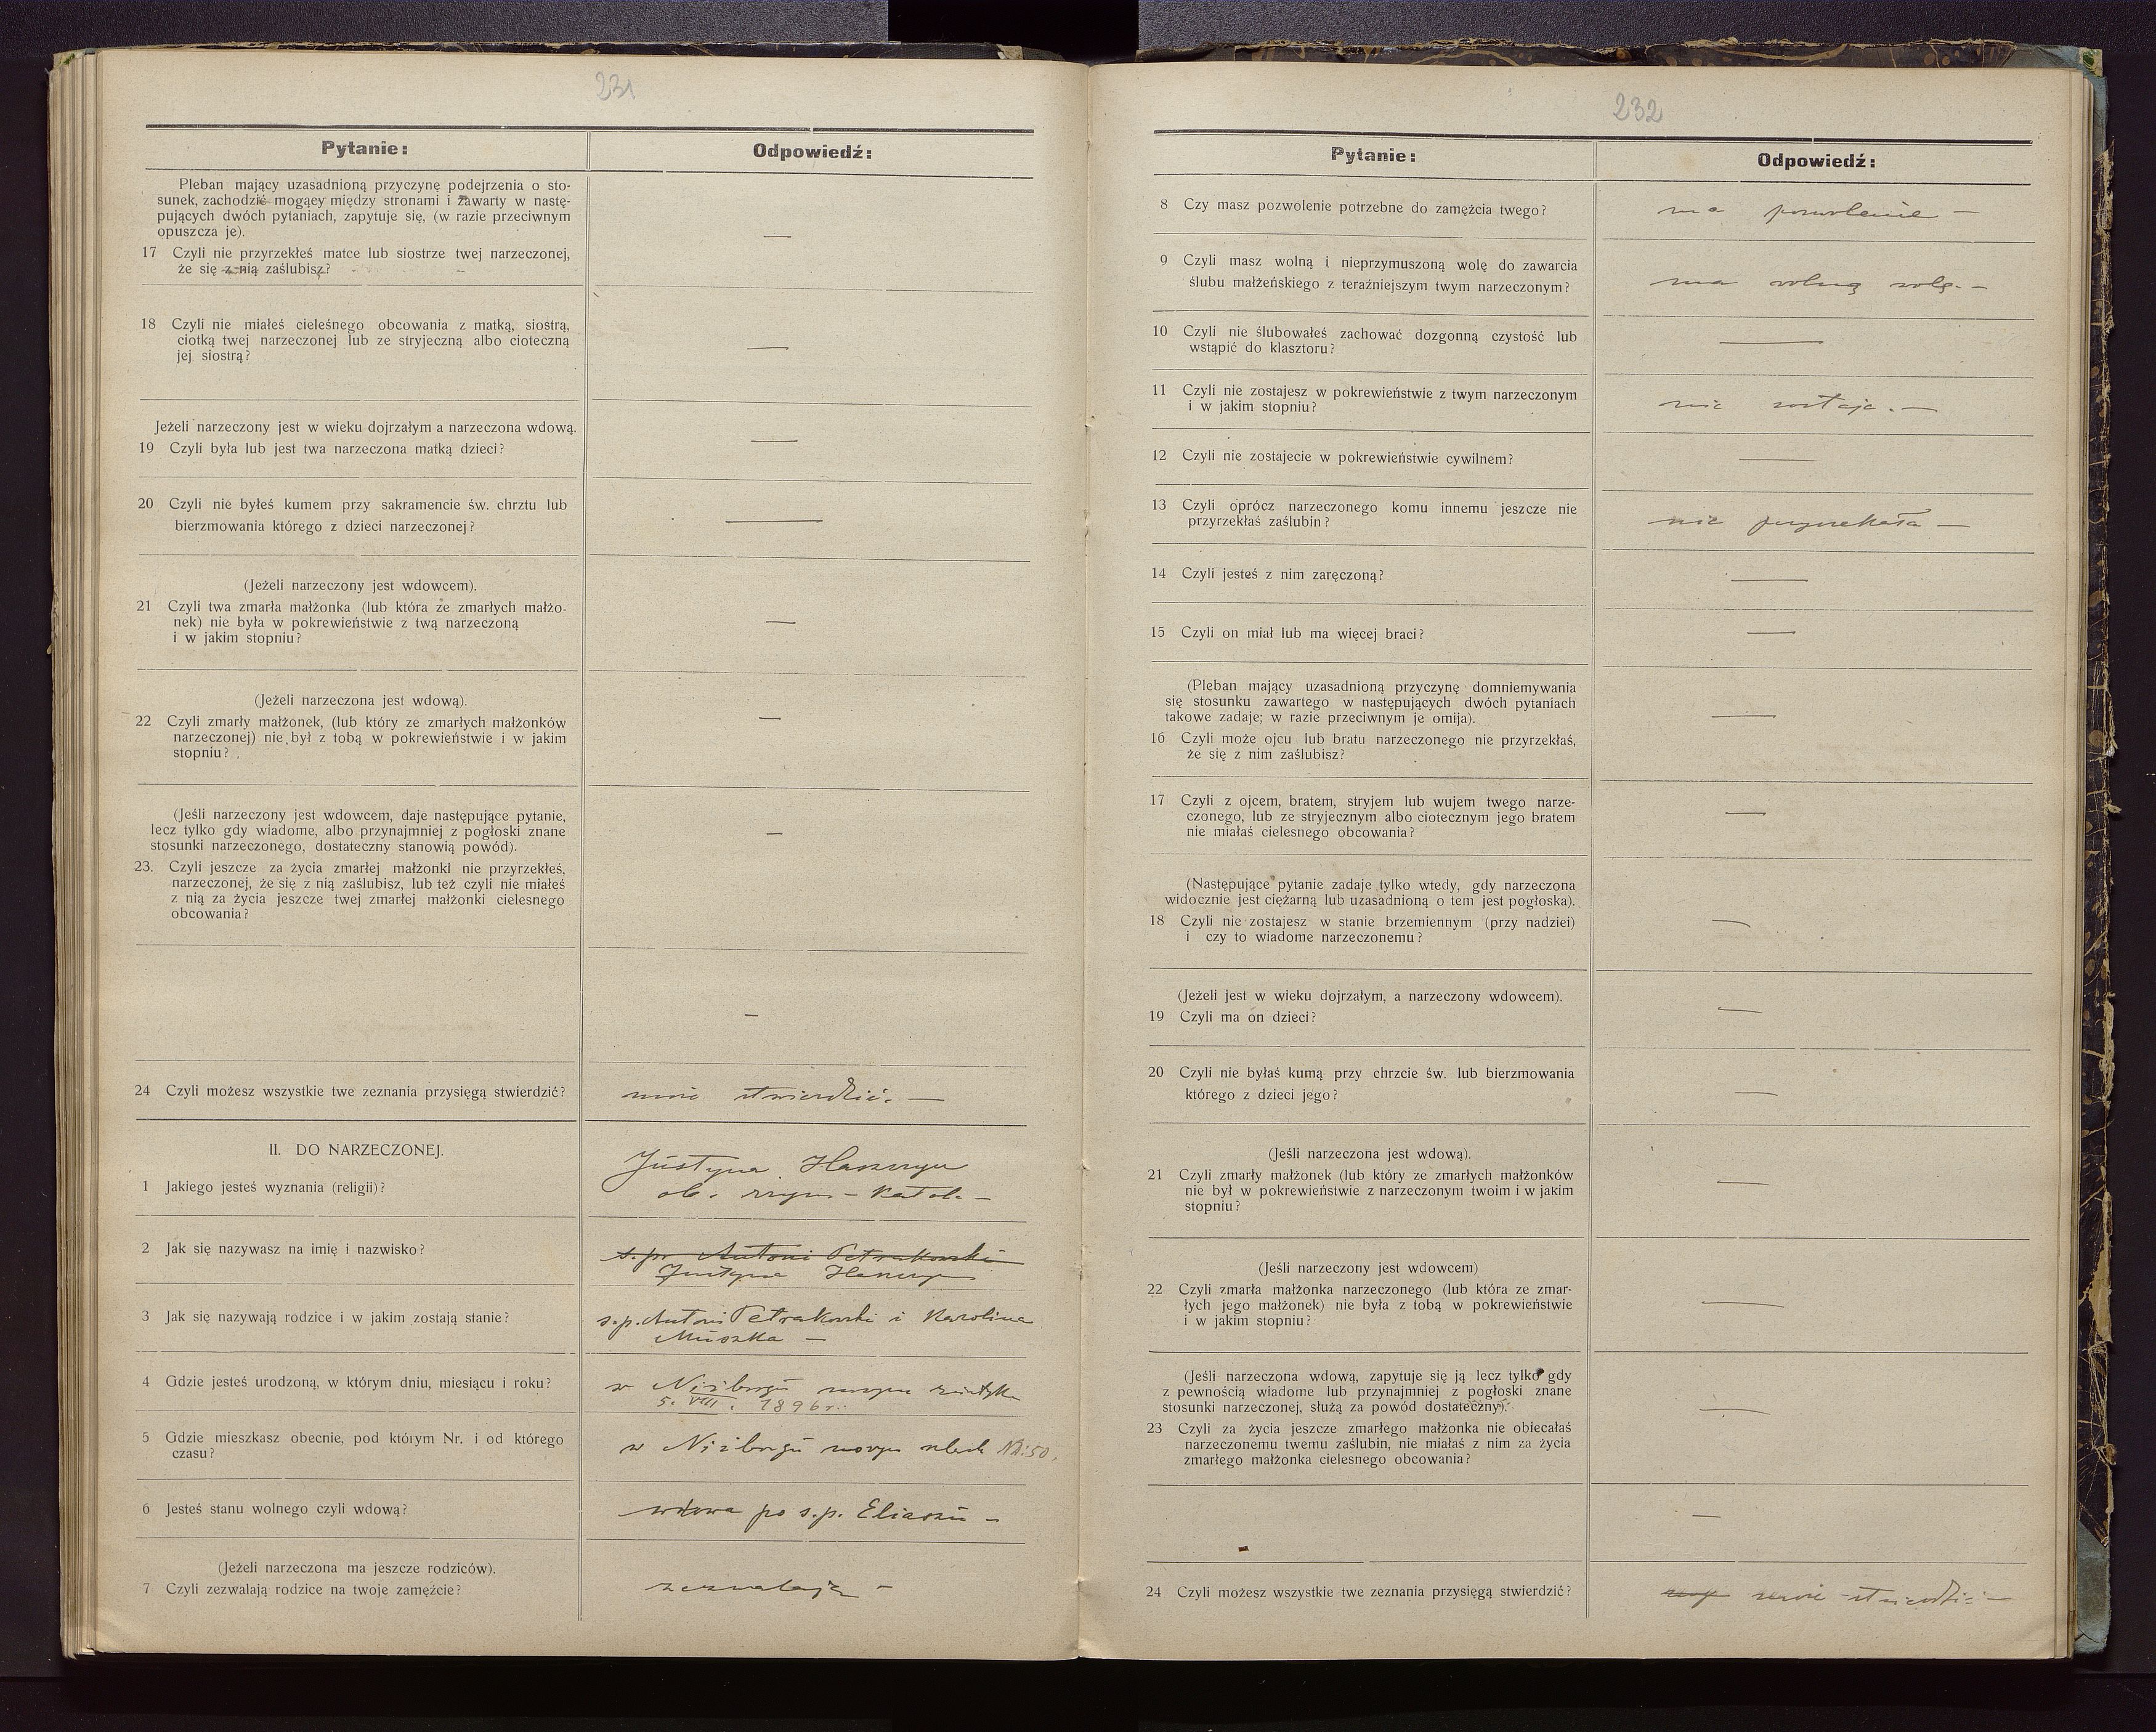 231
Pytanie:
Odpowiedź:
Pleban mający uzasadnioną przyczynę podejrzenia o sto-
sunek, zachodzić mogący między stronami i zawarty w nastę-
pujących dwóch pytaniach, zapytuje się, (w razie przeciwnym
opuszcza je).
—
17 Czyli nie przyrzekłeś matce lub siostrze twej narzeczonej,
że się z nią zaślubisz?
18 Czyli nie miałeś cieleśnego obcowania z matką, siostrą,
ciotką twej narzeczonej lub ze stryjeczną albo cioteczną
jej siostrą?
—
Jeżeli narzeczony jest w wieku dojrzałym a narzeczona wdową.
19 Czyli była lub jest twa narzeczona matką dzieci?
—
20 Czyli nie byłeś kumem przy sakramencie św. chrztu lub
bierzmowania którego z dzieci narzeczonej?
—
(Jeżeli narzeczony jest wdowcem).
21 Czyli twa zmarła małżonka (lub która ze zmarłych małżo-
nek) nie była w pokrewieństwie z twą narzeczoną
i w jakim stopniu?
—
(Jeżeli narzeczona jest wdową).
22 Czyli zmarły małżonek, (lub który ze zmarłych małżonków
narzeczonej) nie był z tobą w pokrewieństwie i w jakim
stopniu?
—
(Jeśli narzeczony jest wdowcem, daje następujące pytanie,
lecz tylko gdy wiadome, albo przynajmniej z pogłoski znane
stosunki narzeczonego, dostateczny stanowią powód).
—
23. Czyli jeszcze za życia zmarłej małżonkl nie przyrzekłeś,
narzeczonej, że się z nią zaślubisz, lub też czyli nie miałeś
z nią za życia jeszcze twej zmarłej małżonki cielesnego
obcowania?
—
24 Czyli możesz wszystkie twe zeznania przysięgą stwierdzić?
może stwierdzić. —
II. DO NARZECZONEJ.
Justyna
1 Jakiego jesteś wyznania (religii)?
ob. rzym - katol. —
2 Jak się nazywasz na imię i nazwisko?
ś.p. Antoni Petrakowski
Justyna
3 Jak się nazywają rodzice i w jakim zostają stanie?
ś.p. Antoni Petrakowski i Karolina
Muszka —
4 Gdzie jesteś urodzoną, w którym dniu, miesiącu i roku?
w Niżborgu nowym
5. VIII. 1896 r.
5 Gdzie mieszkasz obecnie, pod którym Nr. i od którego
czasu?
w Niżborgu nowym 50.
6 Jesteś stanu wolnego czyli wdową?
wdowa po ś.p. Eliaszu —
(Jeżeli narzeczona ma jeszcze rodziców).
7 Czyli zezwalają rodzice na twoje zamęźcie?
zezwalają —
232
Pytanie:
Odpowiedź:
8 Czy masz pozwolenie potrzebne do zamężcia twego?
ma pozwolenie —
9 Czyli masz wolną i nieprzymuszoną wolę do zawarcia
ślubu małżeńskiego z teraźniejszym twym narzeczonym?
ma wolną wolę. —
10 Czyli nie ślubowałeś zachować dozgonną czystość lub
wstąpić do klasztoru?
—
11 Czyli nie zostajesz w pokrewieństwie z twym narzeczonym
i w jakim stopniu?
nie zostaje. —
12 Czyli nie zostajecie w pokrewieństwie cywilnem?
—
13 Czyli oprócz narzeczonego komu innemu jeszcze nie
przyrzekłaś zaślubin?
nie przyrzekała —
14 Czyli jesteś z nim zaręczoną?
—
15 Czyli on miał lub ma więcej braci?
—
(Pleban mający uzasadnioną przyczynę domniemywania
się stosunku zawartego w następujących dwóch pytaniach
takowe zadaje; w razie przeciwnym je omija).
—
16 Czyli może ojcu lub bratu narzeczonego nie przyrzekłaś,
że się z nim zaślubisz?
17 Czyli z ojcem, bratem, stryjem lub wujem twego narze-
czonego, lub ze stryjecznym albo ciotecznym jego bratem
nie miałaś cielesnego obcowania?
—
(Następujące pytanie zadaje tylko wtedy, gdy narzeczona
widocznie jest ciężarną lub uzasadnioną o tem jest pogłoska).
18 Czyli nie zostajesz w stanie brzemiennym (przy nadziei)
i czy to wiadome narzeczonemu?
—
(Jeżeli jest w wieku dojrzałym, a narzeczony wdowcem).
19 Czyli ma on dzieci?
—
20 Czyli nie byłaś kumą przy chrzcie św. lub bierzmowania
którego z dzieci jego?
—
(Jeśli narzeczona jest wdową).
21 Czyli zmarły małżonek (lub który ze zmarłych małżonków
nie był w pokrewieństwie z narzeczonym twoim i w jakim
stopniu?
—
(Jeśli narzeczony jest wdowcem)
22 Czyli zmarła małżonka narzeczonego (lub która ze zmar-
łych jego małżonek) nie była z tobą w pokrewieństwie
i w jakim stopniu?
—
(Jeśli narzeczona wdową, zapytuje się ją lecz tylko gdy
z pewnością wiadome lub przynajmniej z pogłoski znane
stosunki narzeczonej, służą za powód dostateczny).
—
23 Czyli za życia jeszcze zmarłego małżonka nie obiecałaś
narzeczonemu twemu zaślubin, nie miałaś z nim za życia
zmarłego małżonka cielesnego obcowania?
—
24 Czyli możesz wszystkie twe zeznania przysięgą stwierdzić?
może stwierdzić —